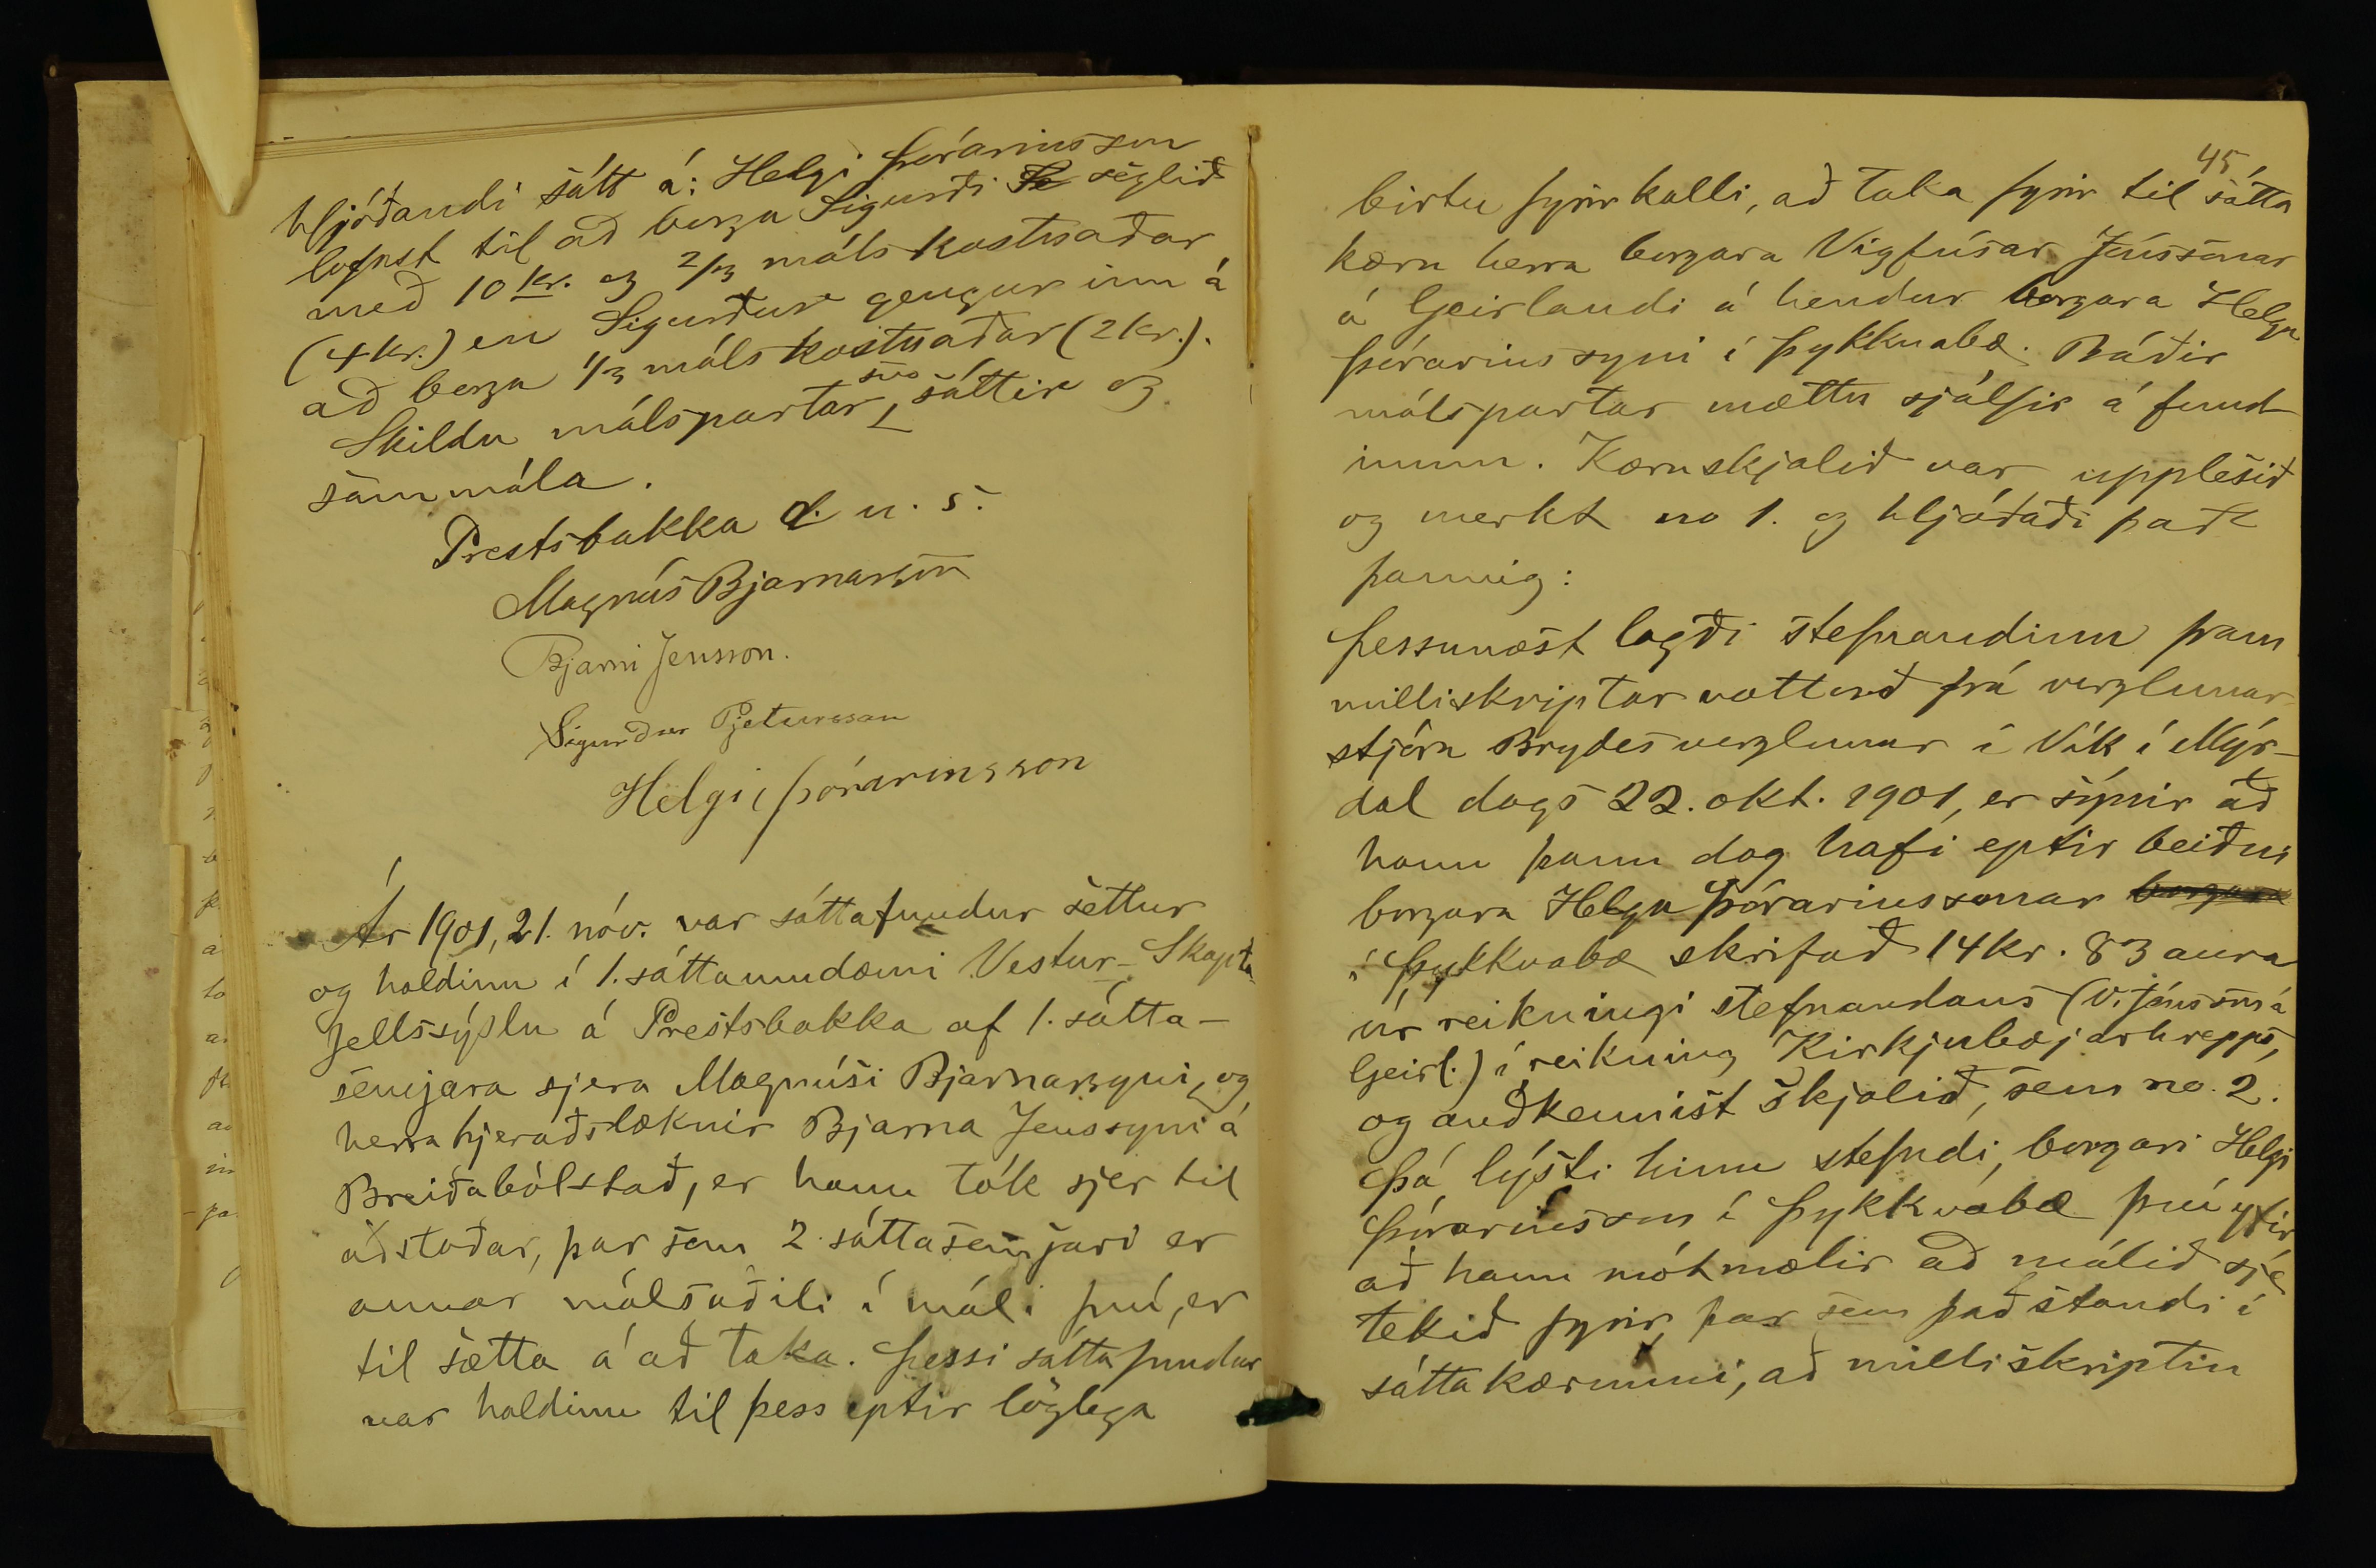 hljóðandi sátt á: Helgi Þórarinsson
lofast til að borga Sigurði seglið
með 10 kr. og 2/3 málskostnaðar
(4 kr.) en Sigurður gengur inn á
að borga 1/3 málskostnaðar (2 kr.).
Skildu málspartar svo sáttir og
sammála.
Prestsbakka d. u. s.
Magnús Bjarnarson
Bjarni Jensson.
Sigurður Pjetursson
Helgi Þórarinsson
Ár 1901, 21. nóv. var sáttafundur settur
og haldinn í 1. sáttaumdæmi Vestur-Skapta
fellssýslu á Prestsbakka af 1. sátta-
semjara sjera Magnúsi Bjarnarsyni, og
herra hjeraðslæknir Bjarna Jenssyni á
Breiðabólstað, er hann tók sjer til
aðstoðar, þar sem 2. sáttasemjari er
annar málsaðili í máli því, er
til sætta á að taka. Þessi sáttafundur
var haldinn til þess eptir löglega
45
birtu fyrirkalli, að taka fyrir til sátta
kæru herra borgara Vigfúsar Jónssonar
á Geirlandi á hendur borgara Helga
Þórarinssyni í Þykkvabæ. Báðir
málspartar mættu sjálfir á fund
inum. Kæruskjalið var upplesið
og merkt no 1. og hljóðaði það
þannig:
Þessunæst lagði stefnandinn fram
milliskriptar vottorð frá verzlunar
stjóra Brydes verzlunar í Vík í Mýr-
dal dags 22. okt. 1901, er sýnir að
hann þann dag hafi eptir beiðni
borgara Helga Þórarinssonar borgara
í Þykkvabæ skrifað 14 kr. 83 aura
úr reikningi stefnandans (V. Jónsson á
Geirl.) í reikning Kirkjubæjarhrepps,
og auðkennist skjalið, sem no. 2.
Þá lýsti hinn stefndi, borgari Helgi
Þórarinsson í Þykkvabæ því yfir
að hann mótmælir að málið sje
tekið fyrir, þar sem það standi í
sáttakærunni, að milliskriptin